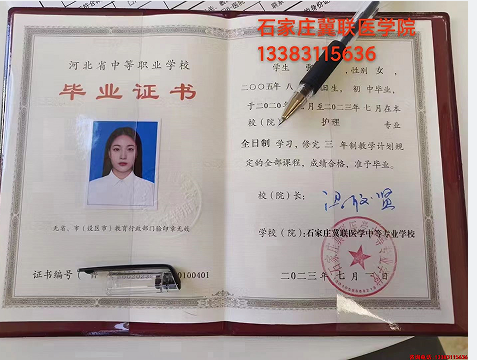 石家庄冀联医学院
13383115636
河北省中等职业学校
毕业证书
无省、市（设区市）教育行政部门验印章无效
证书编号（
0100401
学生
性别 女，
二〇〇五年 八
日生，初 中毕业，
于二〇二〇年
月至二〇二三年 七月在本
校（院）
护理
专业
全日制 学习，修完 三 年制教学计划规
定的全部课程，成绩合格，准予毕业。
校（院）长：
学校（院）：石家庄冀联医学中等专业学校
二〇二三年 七月 一日